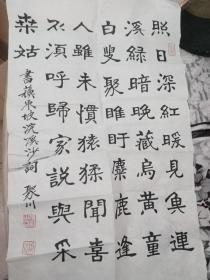 照日深紅暖見魚連
溪緑暗晚藏烏黄童
白叟聚睢盱麋鹿逢
人雖未慣猿猱聞喜
不須呼歸家説與采
桒姑 書蘇東坡浣溪沙詞 聚川